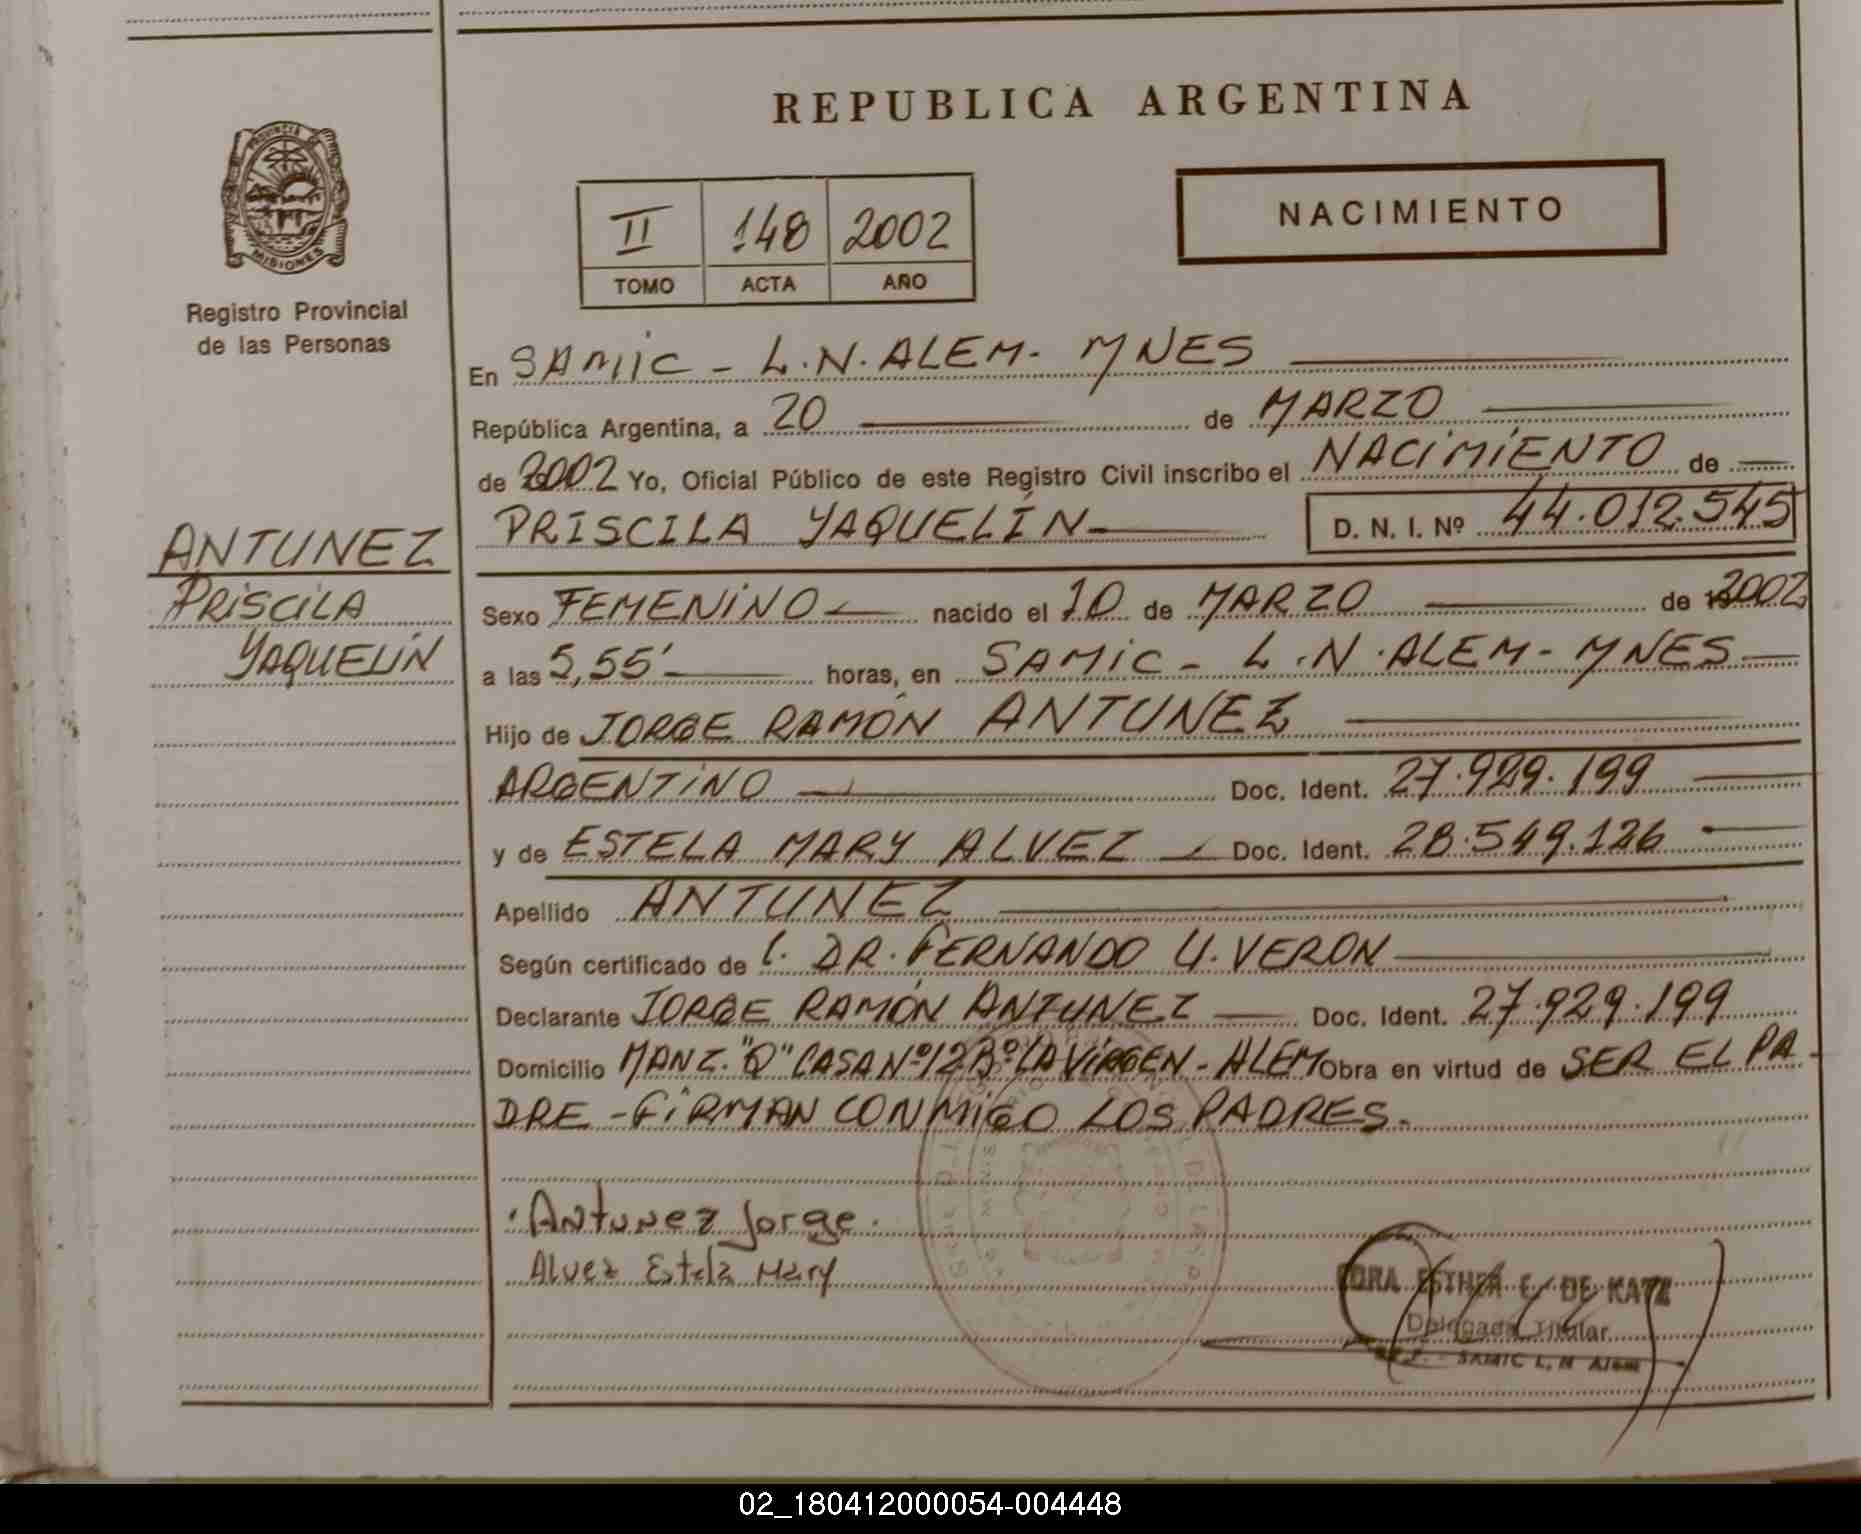 REPUBLICA ARGENTINA
PROVINCIA DE
MISIONES
Registro Provincial
de las Personas
II 148 2002
TOMO ACTA AÑO
NACIMIENTO
En SAMIC - L.N. ALEM - MNES
República Argentina, a 20 de MARZO
de 2002 Yo, Oficial Público de este Registro Civil inscribo el NACIMIENTO de
PRISCILA YAQUELÍN D. N. I. Nº 44.012.545
ANTUNEZ
PRISCILA
YAQUELÍN
Sexo FEMENINO nacido el 10 de MARZO de 2002
a las 5,55' horas, en SAMIC - L.N. ALEM - MNES
Hijo de JORGE RAMÓN ANTUNEZ
ARGENTINO Doc. Ident. 27.929.199
y de ESTELA MARY ALVEZ Doc. Ident. 28.549.126
Apellido ANTUNEZ
Según certificado de l. DR. FERNANDO U. VERON
Declarante JORGE RAMÓN ANTUNEZ Doc. Ident. 27.929.199
Domicilio MANZ. "Q" CASA Nº 12 Bº LA VIRGEN - ALEM Obra en virtud de SER EL PA-
DRE - FIRMAN CONMIGO LOS PADRES.
Antunez Jorge.
Alvez Estela Mary
CDRA ESTHER E. DE KATZ
Delegada Titular
SAMIC L. N Alem
02_180412000054-004448